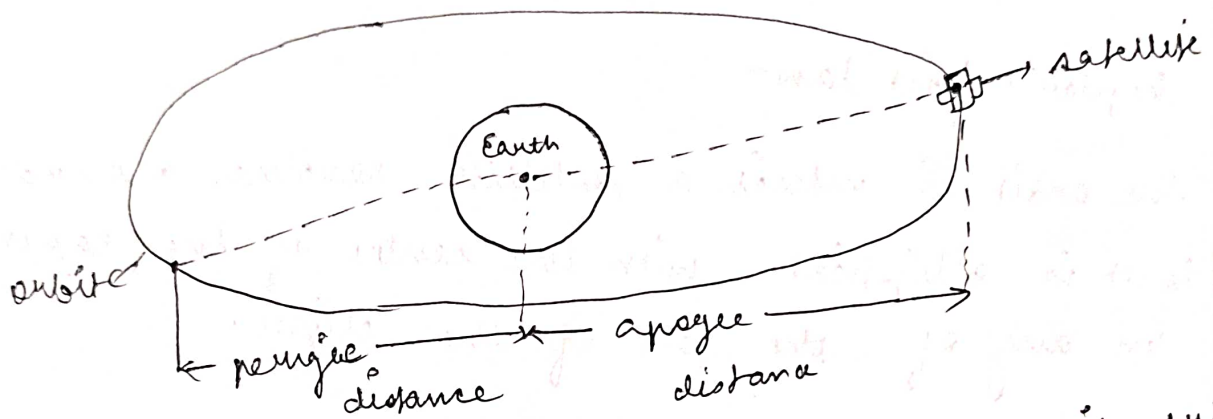 satellite
Earth
orbite
perigee
distance
apogee
distana